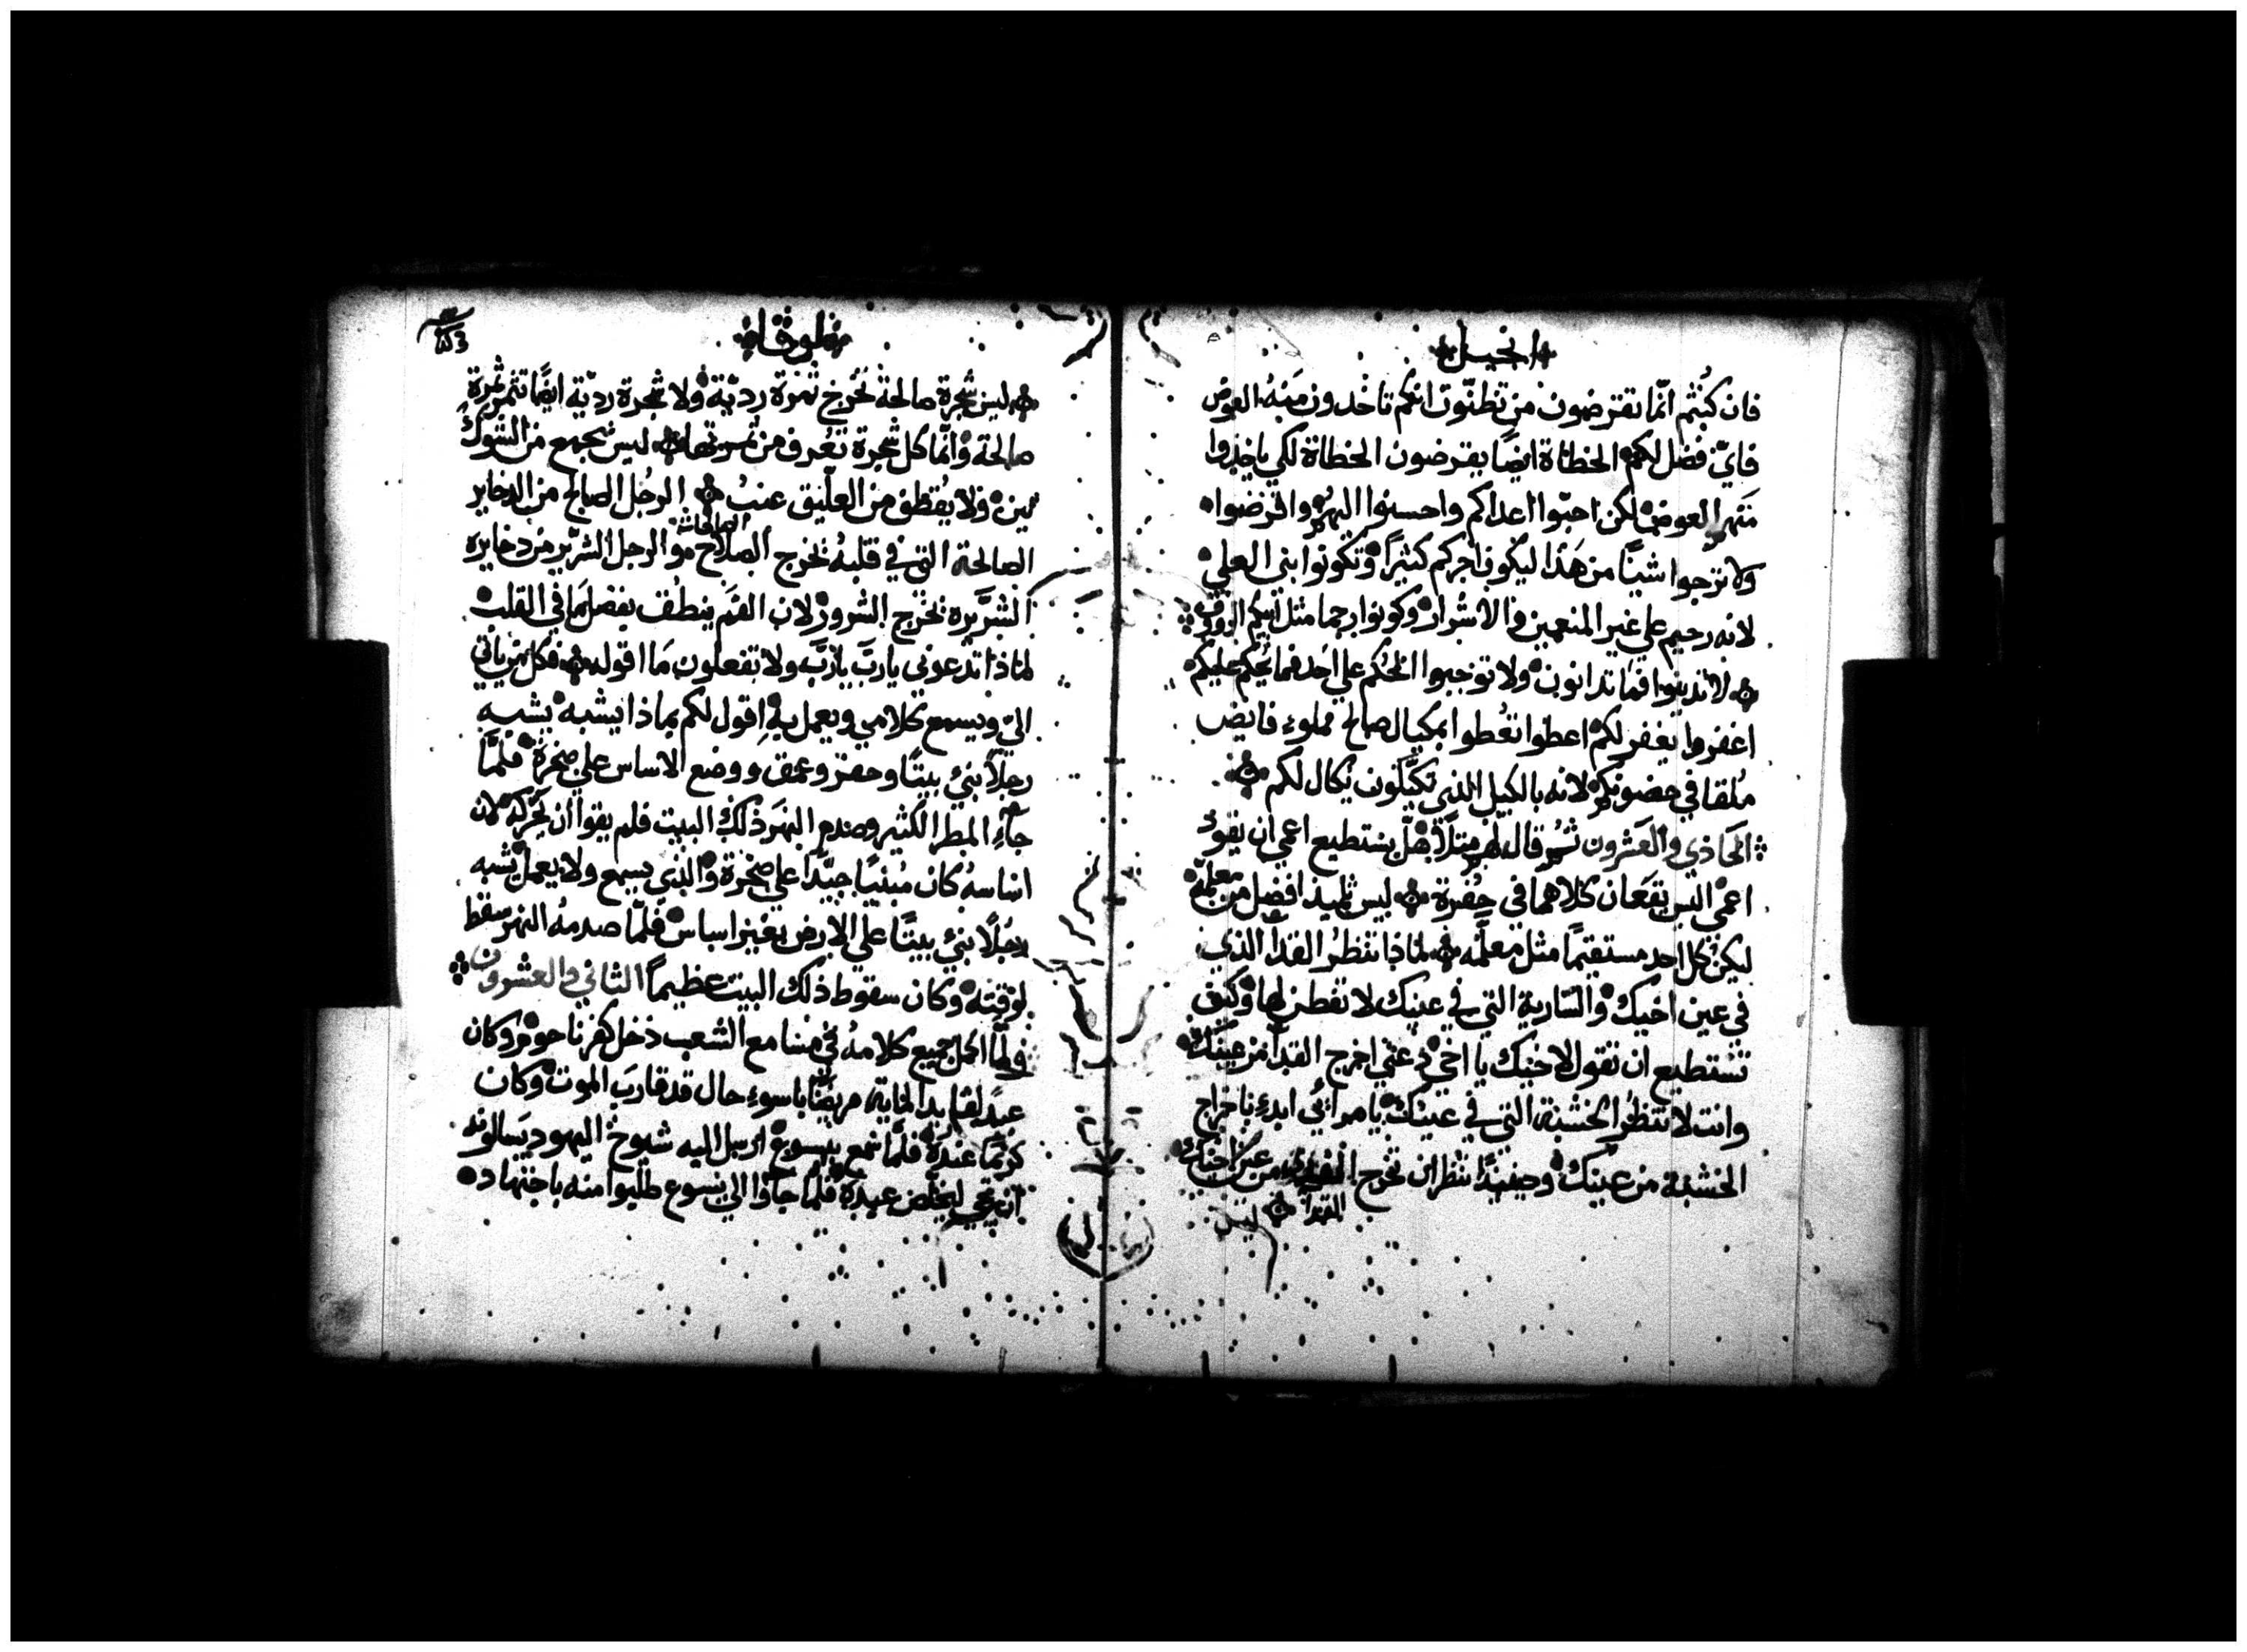 انجيل
فان كنتم انّما تقترضون من تظنّون انكم تاخدون منه العوض
فايّ فضل لكم الخطاة ايضًا يقرضون الخطاة لكي ياخذوا
منهم العوض لكن احبّوا اعداكم واحسنوا اليهم واقرضوا
ولا ترجوا شيئًا من هذا ليكون اجركم كثيرًا وتكونوا بني العلي
لانه رحيم على غير المنعمين والاشرار وكونوا رحما مثل ابيكم الروف
لا تدينوا فما تدانون ولا توجبوا الحكم علي احد فما يحكم عليكم
اغفروا يغفر لكم اعطوا تعُطوا بمكيال صالح مملوءٍ فايض
مُلقا في حضونكم لانه بالكيل الذي تكيّلون يُكال لكم
الحادي والعشرون ثم قال لهم مثلًا هل يستطيع اعمي ان يقود
اعمي اليس يقعان كلاهما في حفرة ليس تلميذ افضل من معلّمه
ليكن كل احد مستقيمًا مثل معلّمه لماذا تنظرُ القذا الذي
في عين اخيك والسّارية التي في عينك لا تفطن لها وكيف
تستطيع ان تقول لاخيك يا اخي دعني اخرج القذا من عينك
وانت لا تنظرُ الخشبة التي في عينك يا مرائي ابدءِ باخراج
الخشبة من عينك وحينيذًا تنظر ان تخرج من عين اخيك
القذا ليس
لوقا
ليس شجرة صالحة تخرج ثمرة رديّة ولا شجرة رديّة ايضًا تثمر ثمرة
صالحة وانّما كل شجرة تعُرف من ثمرتها ليس يجمع من الشوك
تين ولا يُقطف من العلّيق عنبُ الرجُل الصالح من الدخاير
الصالحة التي في قلبهُ يخرج الصلاح الصالحات والرجل الشرّير من دخايره
الشرّيرة يخرج الشرور لان الفم ينطُق بفضل ما في القلب
لماذا تدعونى ياربّ ياربّ ولا تفعلون ما اقوله فكل من ياتي
اليّ ويسمع كلامي ويعمل به اقول لكم بماذا يشبه يشبه
رجلاً بنيَ بيتًا وحفر وعمق ووضع الاساس علي صخرة فلمّا
جاءِ المطر الكثير وصدم النهر ذلك البيت فلم يقوا ان يحركه لان
اساسهُ كان مُبنيًا جيّدًا على صخرة والذي يسمع ولا يعمل يشبه
رجُلًا بنيَ بيتًا علي الارض بغير اساس فلمّا صدمهُ النهر سقط
لوقته وكان سقوط ذلك البيت عظيمًا الثاني والعشرون
ولمّا اكمل جميع كلامهُ في مسا مع الشعب دخل كفرناحوم وكان
عبد لقايد الماية مريضًا باسوءِ حال قد قارب الموت وكان
كريمًا عنده فلمّا سمع بيسوع ارسل اليه شيوخ اليهود يسالونه
ان يجي ليخلّص عبده فلما جاوا الى يسوع طلبوا منه باجتهاد